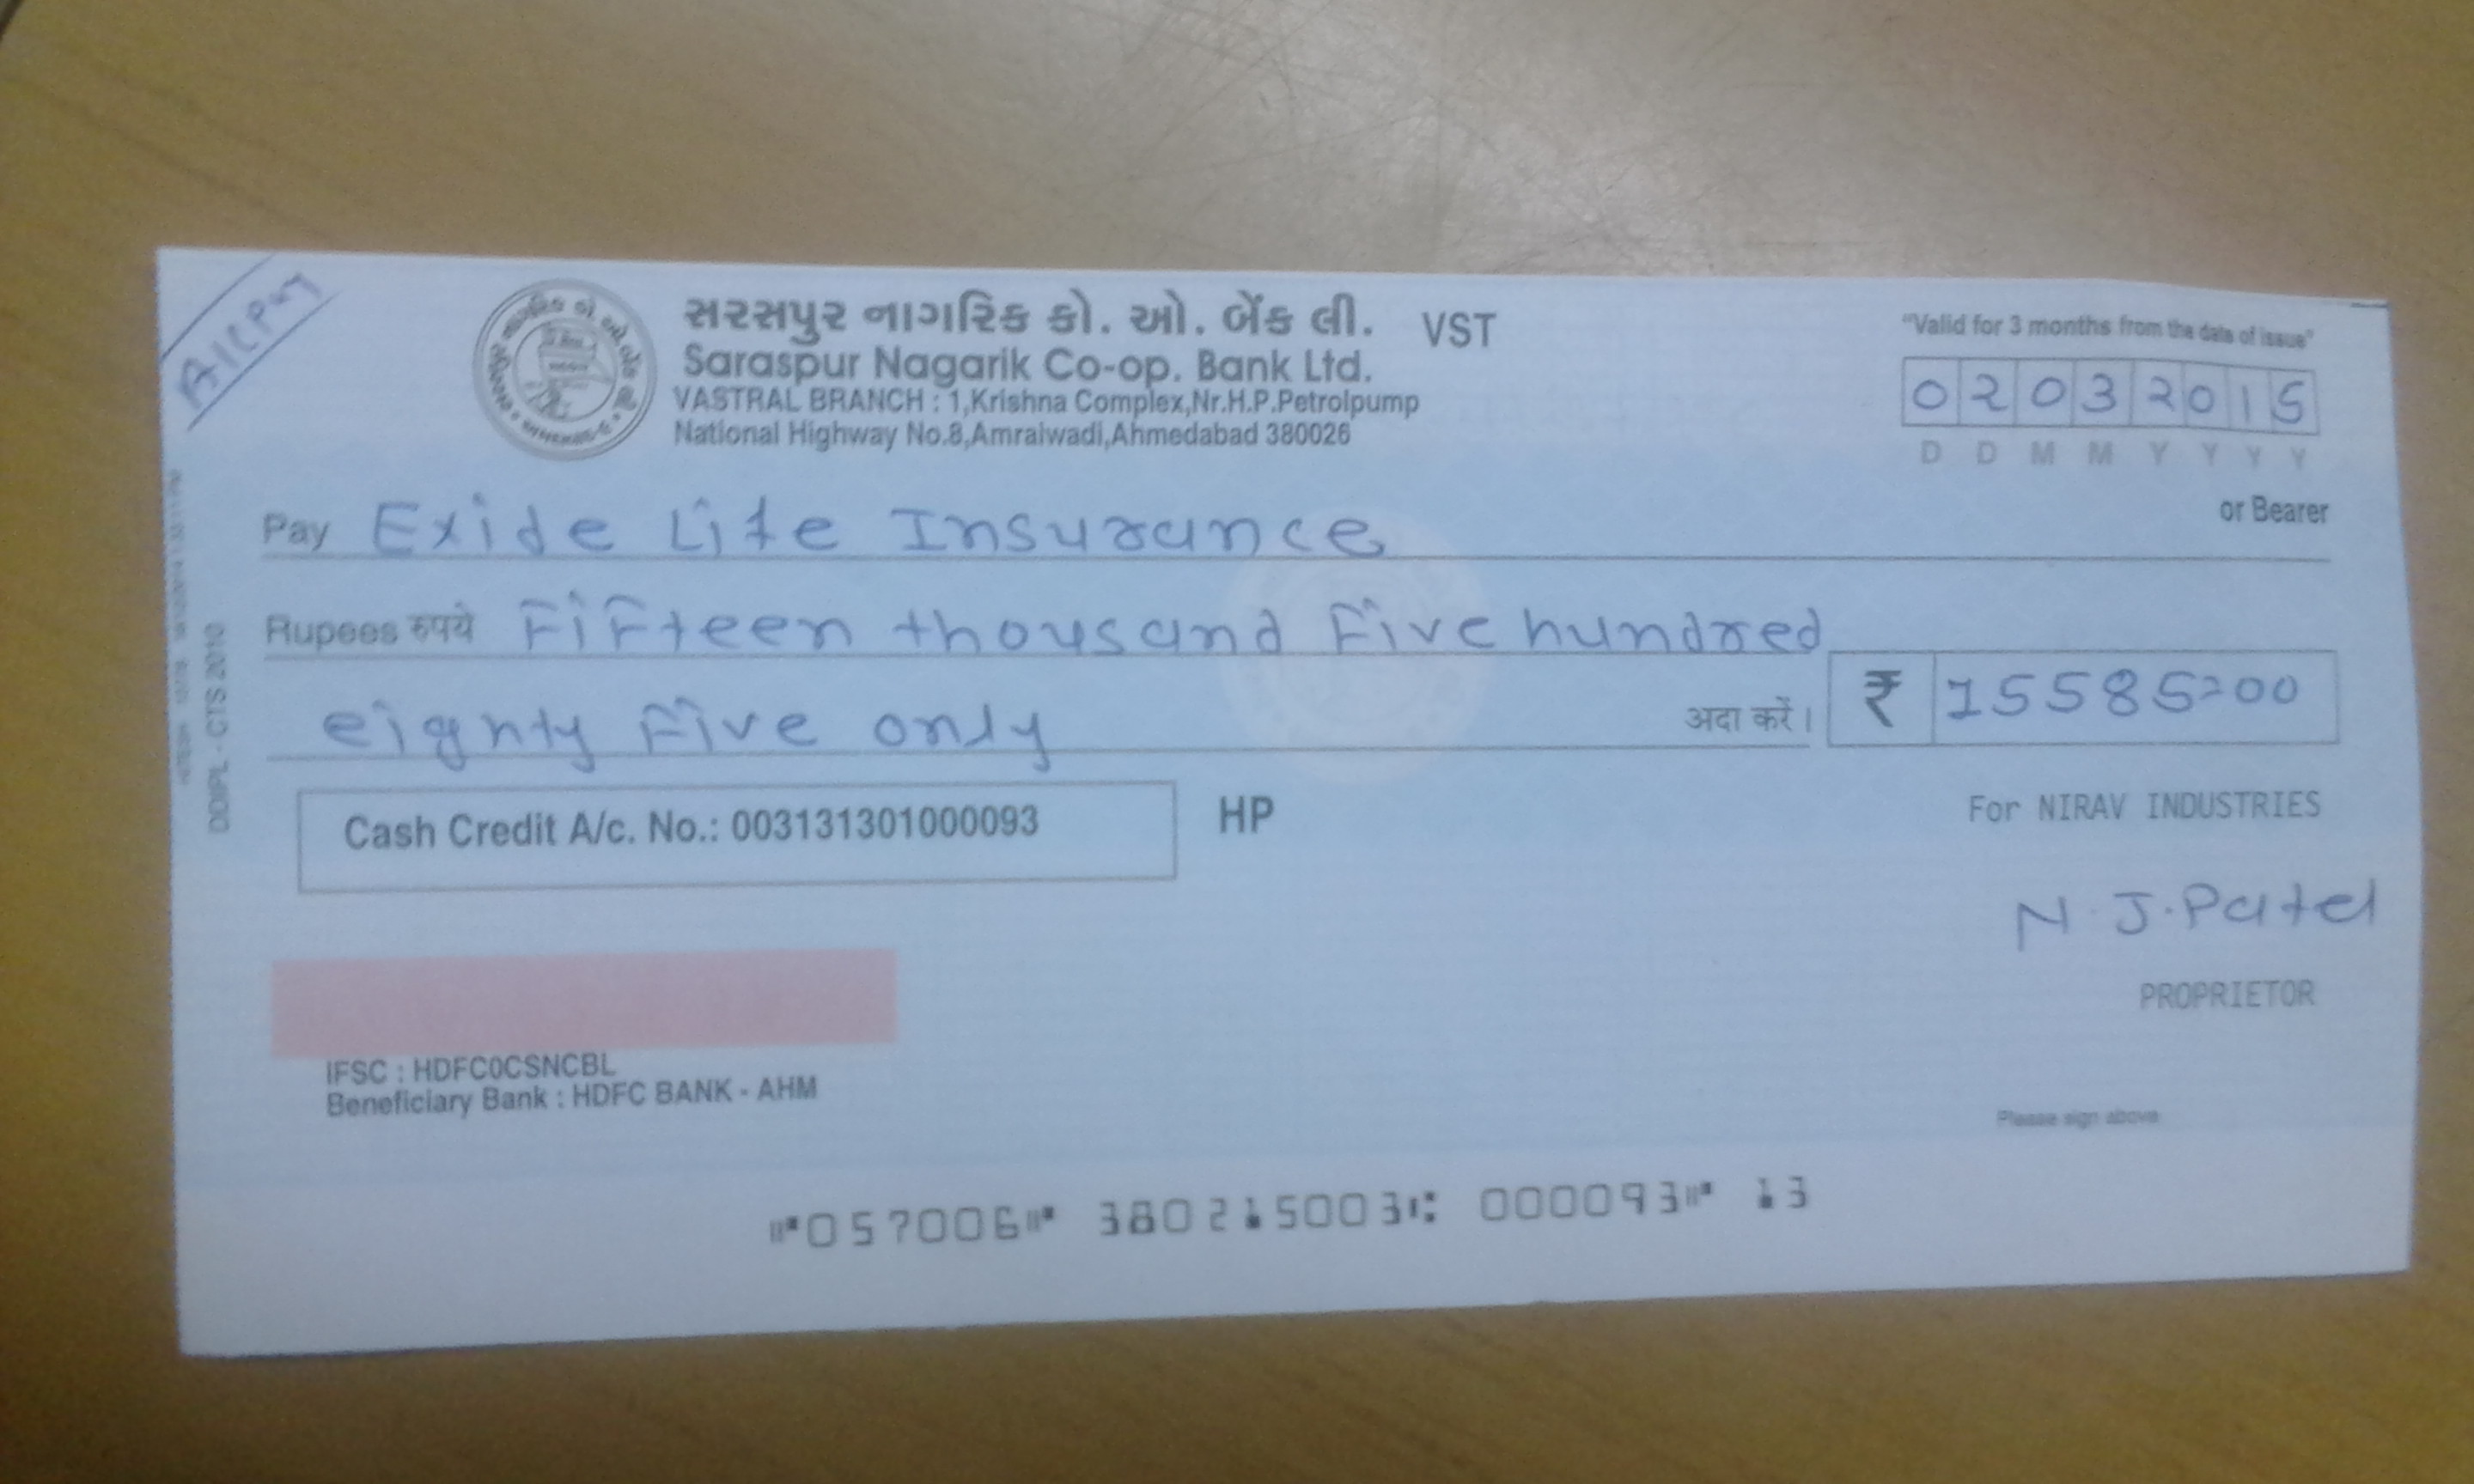 A/C Pay
સરસપુર નાગરિક કો. ઓ. બેંક લી. VST
Saraspur Nagarik Co-op. Bank Ltd.
VASTRAL BRANCH : 1,Krishna Complex,Nr.H.P.Petrolpump
National Highway No.8,Amraiwadi,Ahmedabad 380026
"Valid for 3 months from the date of issue"
02032015
D D M M Y Y Y Y
Pay Exide Life Insurance or Bearer
Rupees रुपये Fifteen thousand Five hundred
eighty Five only अदा करें। ₹ 15585=00
Cash Credit A/c. No.: 003131301000093 HP
For NIRAV INDUSTRIES
N.J.Patel
PROPRIETOR
IFSC : HDFC0CSNCBL
Beneficiary Bank : HDFC BANK - AHM
Please sign above
⑈057006⑈ 380215003⑆ 000093⑈ 13
CTS 2010